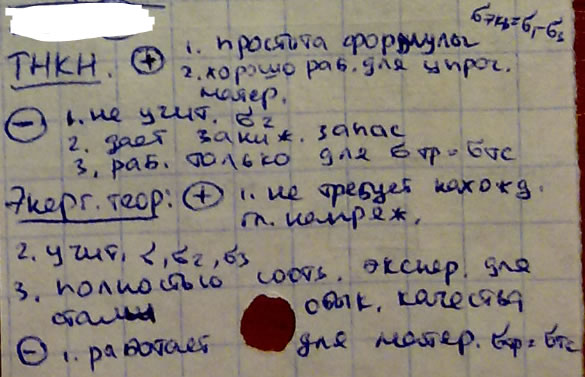 σэкв=σ1-σ3
ТНКН. ⊕ 1. простота формулы
2. хорошо раб. для упроч.
матер.
⊖ 1. не учит. σ2
2. дает заниж. запас
3. раб. только для σтр = σтс
Энерг. теор: ⊕ 1. не требует нахожд.
гл. напряж.
2. учит. σ2, σ3
3. полностью соотв. экспер. для
стали обык. качества
⊖ 1. работает для матер. σтр = σтс